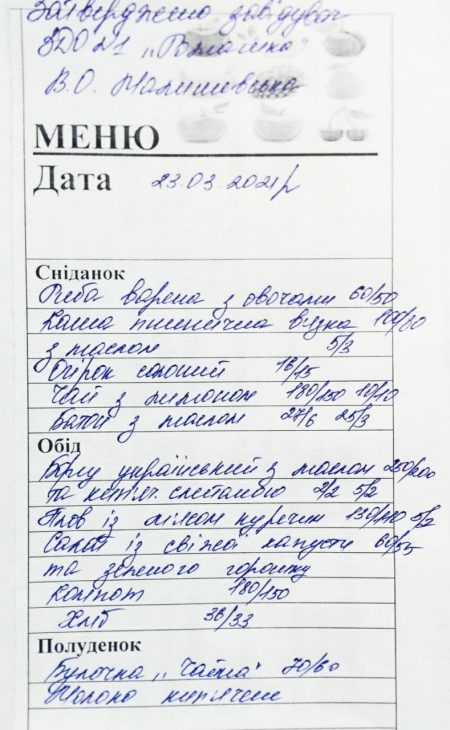 Затверджено завідувач
ЗДО №1 „Ромашка"
В.О. Малишевська
МЕНЮ
Дата 23.03.2021р
Сніданок
Риба варена з овочами 60/50
Каша пшенична в'язка 100/80
з маслом 5/3
Огірок солоний 16/15
Чай з лимоном 180/150 10/10
Батон з маслом 27/6 25/3
Обід
Борщ український з маслом 250/200
та кип'яч. сметаною 2/2 5/2
Плов із м'ясом курячим 130/110 5/2
Салат із свіжої капусти 60/55
та зеленого горошку
Компот 180/150
Хліб 36/33
Полуденок
Булочка „Чайка" 70/60
Молоко кип'ячене